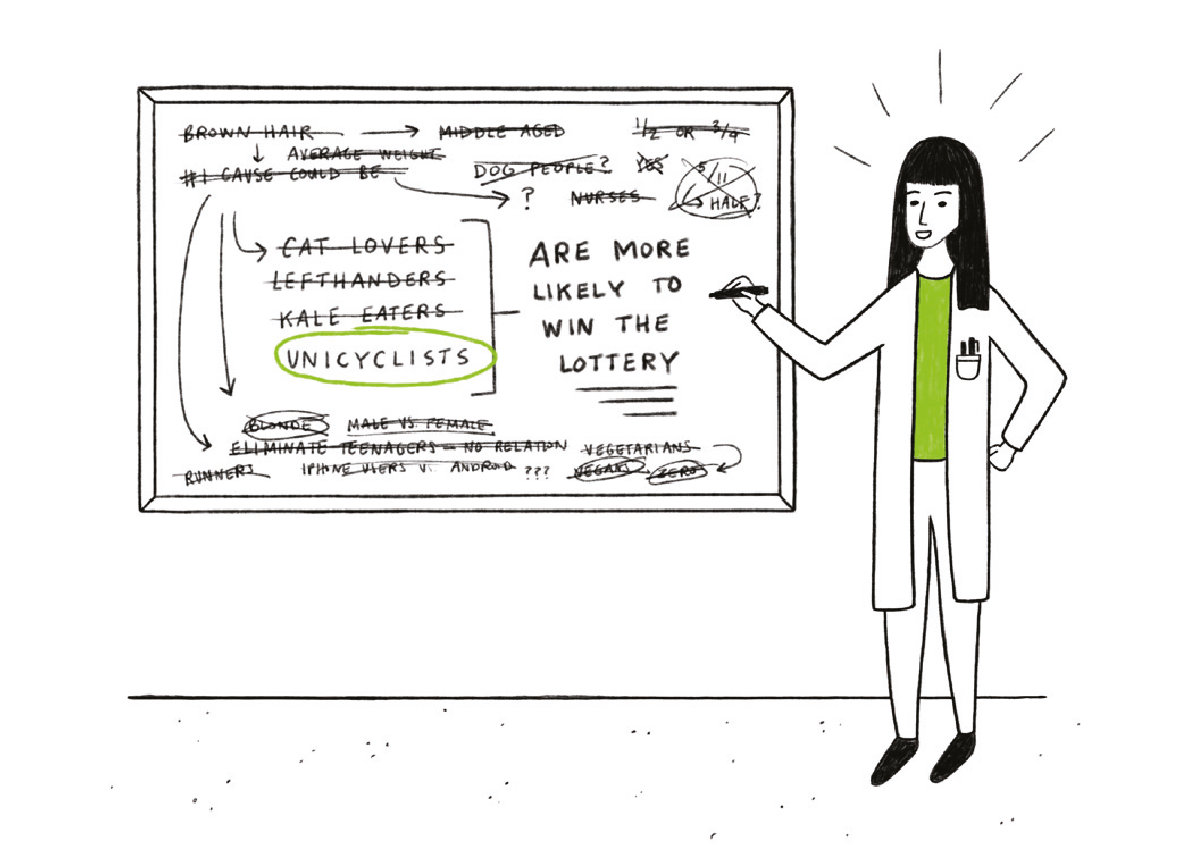 BROWN HAIR → MIDDLE AGED 1/2 OR 3/4
↓ AVERAGE WEIGHT
#1 CAUSE COULD BE DOG PEOPLE? YES 5/11
? NURSES HALF?
CAT LOVERS
LEFTHANDERS
KALE EATERS
UNICYCLISTS
ARE MORE
LIKELY TO
WIN THE
LOTTERY
BLONDE MALE VS. FEMALE
ELIMINATE TEENAGERS — NO RELATION VEGETARIANS
RUNNERS IPHONE USERS V. ANDROID ??? VEGANS ZERO